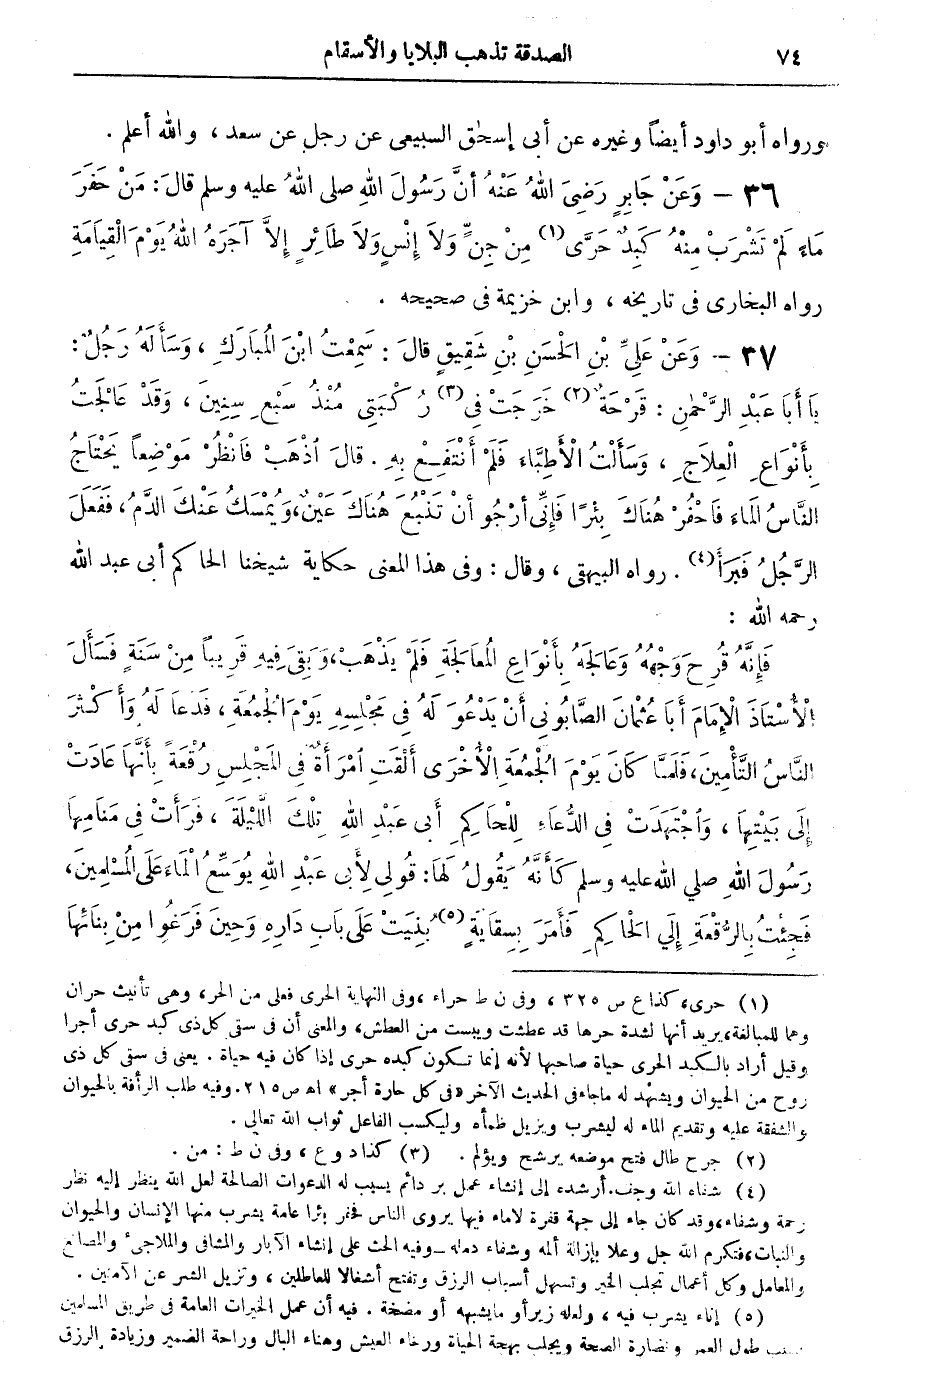 ٧٤ الصدقة تذهب البلايا والأسقام
ورواه أبو داود أيضاً وغيره عن أبى إسحٰق السبيعى عن رجل عن سعد ، والله أعلم .
٣٦ – وَعَنْ جَابِرٍ رَضِىَ اللهُ عَنْهُ أَنَّ رَسُولَ اللهِ صلى اللهُ عليه وسلم قالَ : مَنْ حَفَرَ
مَاءً لَمْ تَشْرَبْ مِنْهُ كَبِدٌ حَرَّى (١) مِنْ جِنٍّ وَلاَ إِنْسٍ وَلاَ طَائِرٍ إِلاَّ آجَرَهُ اللهُ يَوْمَ الْقِيَامَةِ
رواه البخارى فى تاريخه ، وابن خزيمة فى صحيحه .
٣٧ – وَعَنْ عَلِيِّ بْنِ الحَسَنِ بْنِ شَقِيقٍ قالَ : سَمِعْتُ ابْنَ الْمُبَارَكِ ، وَسَأَلَهُ رَجُلٌ :
يَا أَبَا عَبْدِ الرَّحْمٰنِ : قَرْحَةٌ (٢) خَرَجَتْ فِى (٣) رُكْبَتِى مُنْذُ سَبْعِ سِنِينَ ، وَقَدْ عَالَجْتُ
بِأَنْوَاعِ الْعِلاَجِ ، وَسَأَلْتُ الْأَطِبَّاءَ فَلَمْ أَنْتَفِعْ بِهِ . قالَ اذْهَبْ فَانْظُرْ مَوْضِعاً يَحْتَاجُ
النَّاسُ الْمَاءَ فَاحْفُرْ هُنَاكَ بِئْرًا فَإِنِّى أَرْجُو أَنْ تَنْبُعَ هُنَاكَ عَيْنٌ ، وَيُمْسَكُ عَنْكَ الدَّمُ ، فَفَعَلَ
الرَّجُلُ فَبَرَأَ (٤) . رواه البيهقى ، وقال : وفى هذا المعنى حكاية شيخنا الحاكم أبى عبد الله
رحمه الله :
فَإِنَّهُ قُرِحَ وَجْهُهُ وَعَالَجَهُ بِأَنْوَاعِ الْمُعَالَجَةِ فَلَمْ يَذْهَبْ ، وَبَقِىَ فِيهِ قَرِيباً مِنْ سَنَةٍ فَسَأَلَ
الْأُسْتَاذَ الْإِمَامَ أَبَا عُثْمَانَ الصَّابُونِى أَنْ يَدْعُوَ لَهُ فِى مَجْلِسِهِ يَوْمَ الْجُمُعَةِ ، فَدَعَا لَهُ وَأَكْثَرَ
النَّاسُ التَّأْمِينَ ، فَلَمَّا كَانَ يَوْمَ الْجُمُعَةِ الْأُخْرَى أَلْقَتِ امْرَأَةٌ فِى الْمَجْلِسِ رُقْعَةً بِأَنَّهَا عَادَتْ
إِلَى بَيْتِهَا ، وَاجْتَهَدَتْ فِى الدُّعَاءِ لِلْحَاكِمِ أَبِى عَبْدِ اللهِ تِلْكَ اللَّيْلَةَ ، فَرَأَتْ فِى مَنَامِهَا
رَسُولَ اللهِ صلي الله عليه وسلم كَأَنَّهُ يَقُولُ لَهَا : قُولِى لِأَبِى عَبْدِ اللهِ يُوَسِّعُ الْمَاءَ عَلَى الْمُسْلِمِينَ ،
فَجِئْتُ بِالرُّقْعَةِ إِلَي الْحَاكِمِ فَأَمَرَ بِسِقَايَةٍ (٥) بُنِيَتْ عَلَى بَابِ دَارِهِ وَحِينَ فَرَغُوا مِنْ بِنَائِهَا
(١) حرى ، كذا ع ص ٣٢٥ ، وفى ن ط حراء ، وفى النهاية الحرى فعلى من الحر ، وهى تأنيث حران
وهما للمبالغة ، يريد أنها لشدة حرها قد عطشت ويبست من العطش ، والمعنى أن فى سقى كل ذى كبد حرى أجرا
وقيل أراد بالكبد الحرى حياة صاحبها لأنه إنما تكون كبده حرى إذا كان فيه حياة . يعنى فى سقى كل ذى
روح من الحيوان ويشهد له ما جاء فى الحديث الآخر «فى كل حارة أجر» اه ص ٢١٥ . وفيه طلب الرأفة بالحيوان
والشفقة عليه وتقديم الماء له ليشرب ويزيل ظمأه وليكسب الفاعل ثواب الله تعالى .
(٢) جرح طال فتح موضعه يرشح ويؤلم . (٣) كذا د و ع ، وفى ن ط : من .
(٤) شفاء الله وجف . أرشده إلى إنشاء عمل بر دائم يسبب له الدعوات الصالحة لعل الله ينظر إليه نظر
رحمة وشفاء ، وقد كان جاء إلى جهة قفرة لا ماء فيها يروى الناس فحفر بئرا عامة يشرب منها الإنسان والحيوان
والنبات ، فتكرم الله جل وعلا بإزالة ألمه وشفاء دمله ــ وفيه الحث على إنشاء الآبار والمشافى والملاجئ والمصانع
والمعامل وكل أعمال تجلب الخير وتسهل أسباب الرزق وتفتح أشغالا للعاطلين ، وتزيل الشر عن الآمنين .
(٥) إناء يشرب فيه ، ولعله زير أو ما يشبهه أو مضخة . فيه أن عمل الخيرات العامة فى طريق المسلمين
طول العمر ونضارة الصحة ويجلب بهجة الحياة ورخاء العيش وهناء البال وراحة الضمير وزيادة الرزق